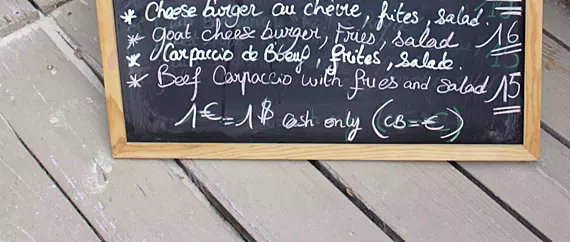 * Cheese burger au chèvre, frites, salad.
* goat cheese burger, Fries, salad 16
* Carpaccio de Boeuf, frites, salade.
* Beef Carpaccio with fries and salad 15
1€ = 1$ cash only (CB = €)